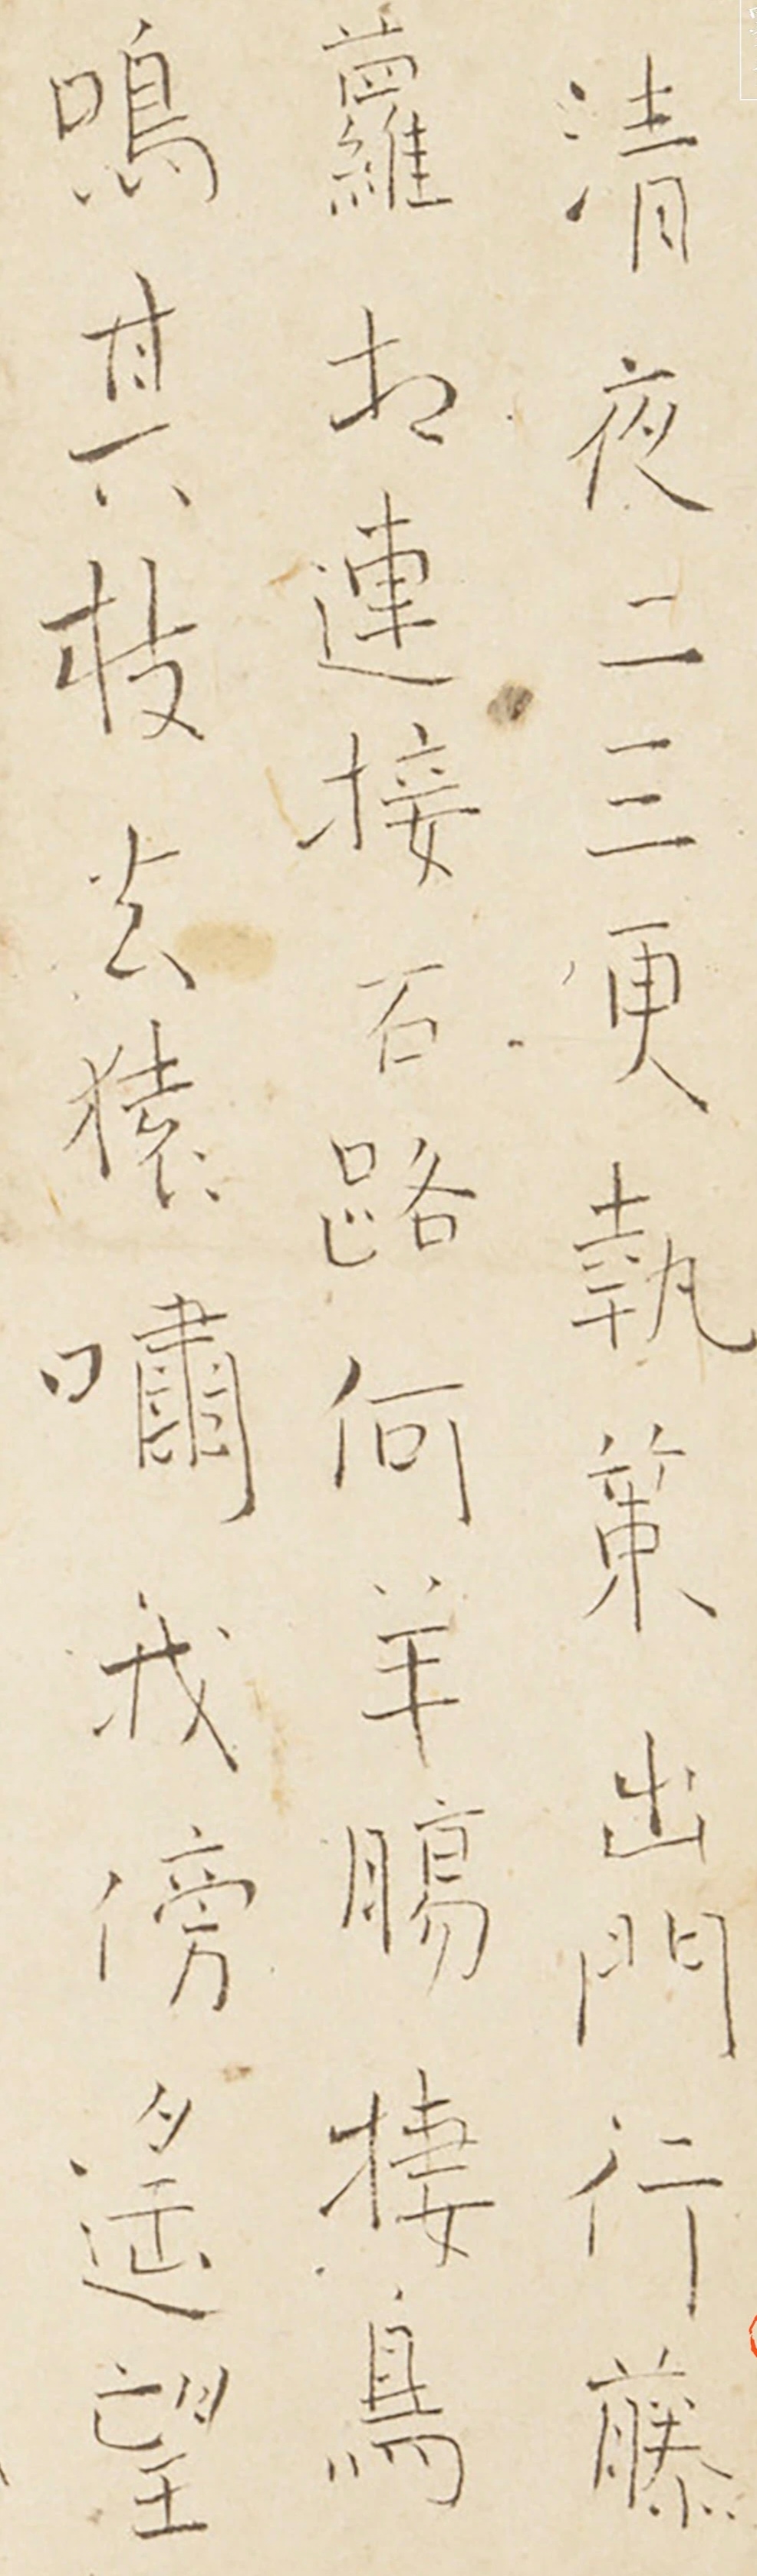 清夜二三更執策出門行藤
蘿相連接石路何羊腸棲鳥
鳴其枝玄猿嘯我傍遙望